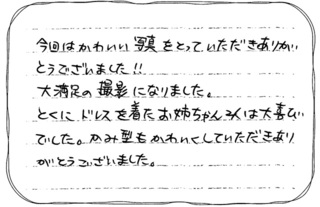 今回はかわいい写真をとっていただきありが
とうございました!!
大満足の撮影になりました。
とくにドレスを着たお姉ちゃん2人は大喜び
でした。かみ型もかわいくしていただきあり
がとうございました。